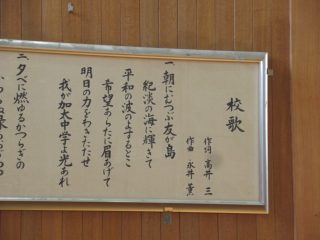 校歌
作詞 高井 三
作曲 永井 薫
一 朝にむつぶ友が島
紀淡の海に輝きて
平和の波のよするとこ
希望あらたに眉あげて
明日の力をわきたたせ
我が加太中学よ光あれ
二 夕べに燃ゆるかつらぎの